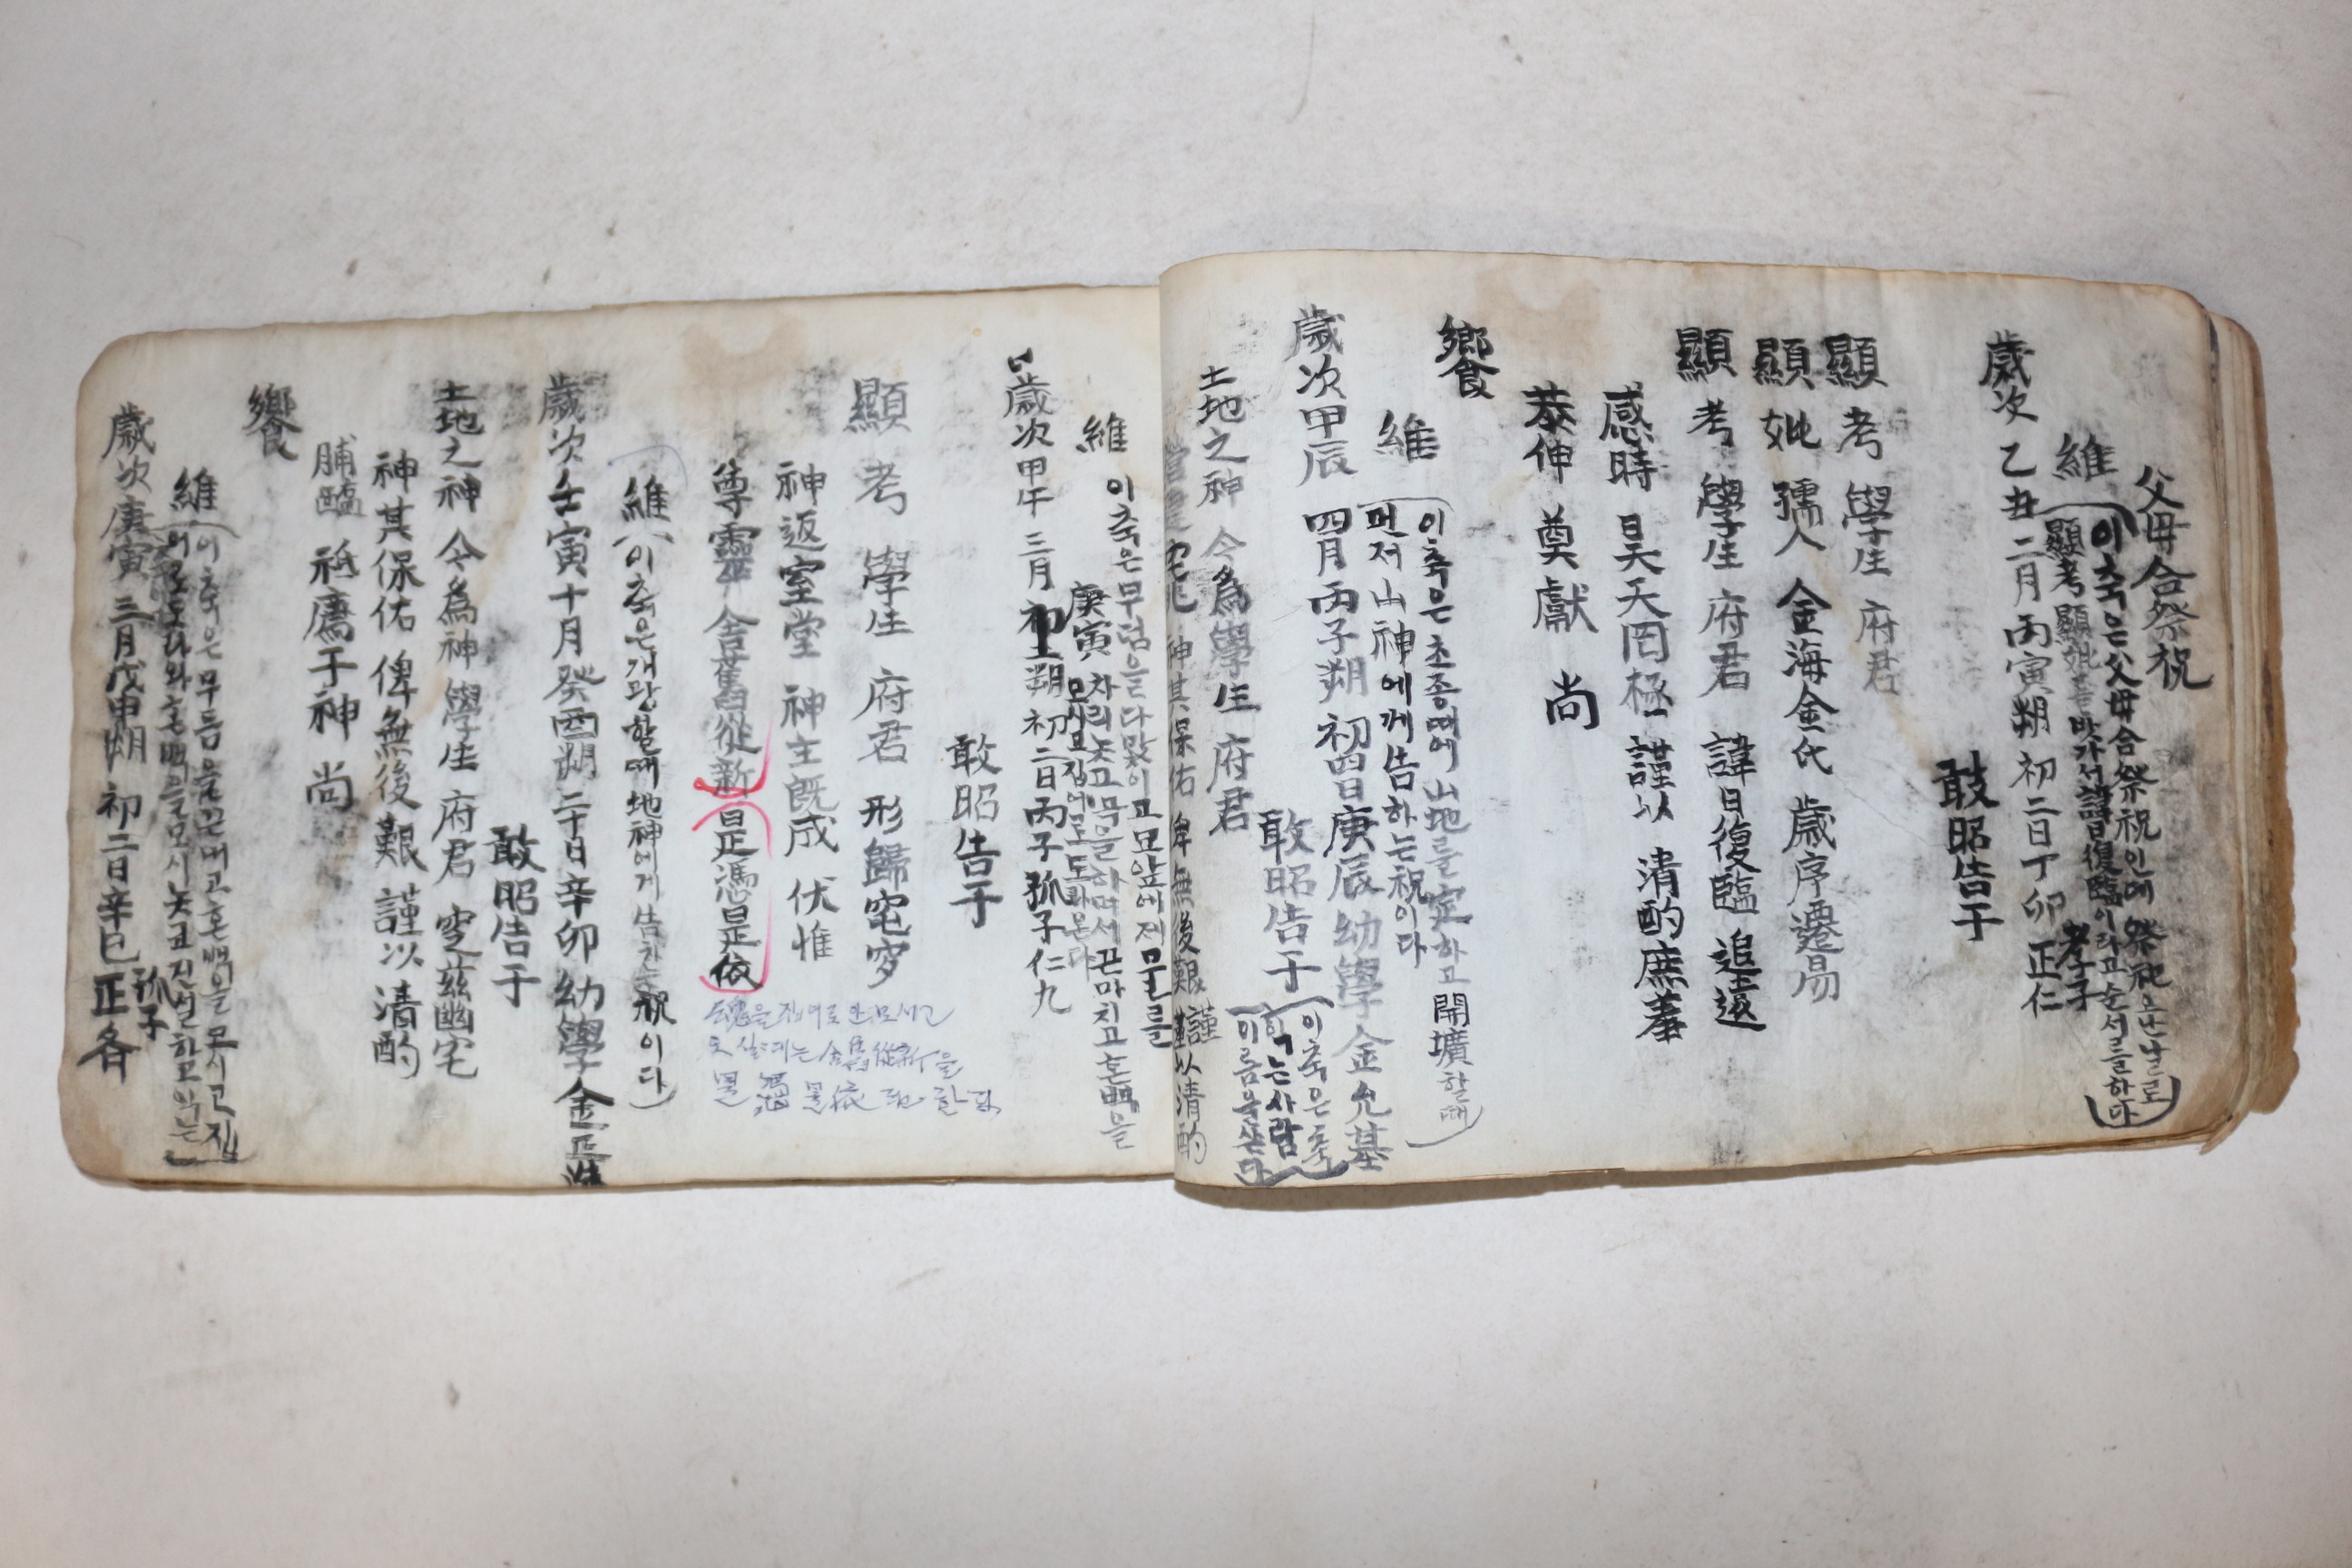 父母合祭祝
維
(이축은父母合祭祝인데 祭祀드는날로
顯考顯妣를밧가서諱日復臨이라고순서를한다)
歲次 乙丑二月丙寅朔 初二日丁卯 孝子 正仁
敢昭告于
顯考 學生 府君
顯妣 孺人 金海金氏 歲序遷易
顯考 學生 府君 諱日復臨 追遠
感時 昊天罔極 謹以 淸酌庶羞
恭伸 奠獻 尙
饗
維
(이축은초종때에 山地를定하고 開壙할때
먼저山神에게告하는祝이다
歲次甲辰 四月丙子朔 初四日庚辰幼學金允基
敢昭告于
(이축은축
학는사람
이름을쓴다)
土地之神 今為學生 府君
營建宅兆 神其保佑 俾無後艱 謹以淸酌
이축은무덤을다맟이고묘앞에제물를
차리놋고 독을하며서끈마치고혼백을
모시고집에로도라온다
維
歲次甲午 三月初朔初二日丙子孤子仁九
庚寅
敢昭告于
顯考 學生 府君 形歸窀穸
神返室堂 神主旣成 伏惟
尊靈 舍舊從新 是憑是依
魂을집어로안모시고
舍舊從新을
是憑是依
維
(이축은개광할때地神에게告하는祝이다)
歲次壬寅十月癸酉朔 二十日辛卯幼學金正
敢昭告于
土地之神 今為神學生 府君 窆茲幽宅
神其保佑 俾無後艱 謹以淸酌
脯醢 祗薦于神 尙
饗
維
(이축은무듬을끈내고혼백을모시고집
어로도라와혼백을모시놋코진설하고익는)
歲次庚寅 三月戊申朔 初二日辛巳 孤子 正各